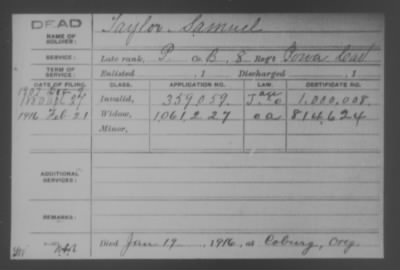 DEAD
NAME OF SOLDIER: Taylor Samuel
SERVICE: Late rank, P. Co. B, 8 Reg't Iowa Cav
TERM OF SERVICE: Enlisted , 1 Discharged , 1
DATE OF FILING. CLASS. APPLICATION NO. LAW. CERTIFICATE NO.
1907
Invalid, 359,059. 1,000,008.
1916 Feb 21 Widow, 1,061,227 814,624
Minor,
ADDITIONAL SERVICES:
REMARKS:
Died Jan 19, 1916, at Coburg, Oreg.